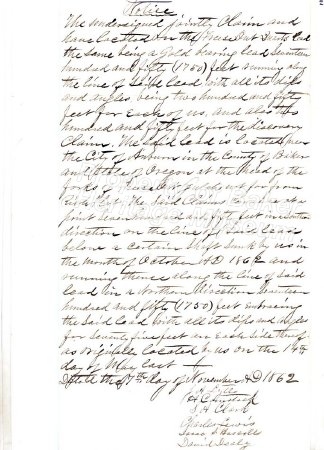 Notice
The undersigned jointly Claim and
have located on the                   Lead
the same being a Gold bearing lead Seventeen
hundred and fifty (1750) feet running along
the line of said lead with all its dips
and angles being two hundred and fifty
feet for Each of us, and also two
hundred and fifty feet for the discovery
Claim. The said Lead is located near
the City of Auburn in the County of Baker
and State of Oregon at the Head of the
forks of                   not far from
            The Said Claims                   at a
point Seven hundred and fifty feet in                  
direction on the line of Said lead
below a Certain Shaft Sunk by us in
the month of October AD 1862 and
running thence along the line of Said
lead in a Northern direction Seventeen
hundred and fifty (1750) feet Embracing
the Said lead with all its dips and angles
for Seventy five feet on Each side thereof
as originally located by us on the 14th
day of May last
            the       day of November AD 1862
S. A. Clark
Charles Lewis
David